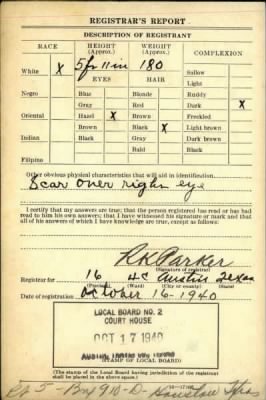 REGISTRAR'S REPORT
DESCRIPTION OF REGISTRANT
RACE HEIGHT (Approx.) WEIGHT (Approx.) COMPLEXION
White X 5 ft 11 in 180 Sallow
EYES HAIR Light
Negro Blue Blonde Ruddy
Gray Red Dark X
Oriental Hazel X Brown Freckled
Brown Black X Light brown
Indian Black Gray Dark brown
Bald Black
Filipino
Other obvious physical characteristics that will aid in identification
Scar over right eye
I certify that my answers are true; that the person registered has read or has had
read to him his own answers; that I have witnessed his signature or mark and that
all of his answers of which I have knowledge are true, except as follows:
RK Parker
(Signature of registrar)
Registrar for 16 4C Austin Texas
(Precinct) (Ward) (City or county) (State)
Date of registration October 16-1940
LOCAL BOARD NO. 2
COURT HOUSE
OCT 17 1940
(STAMP OF LOCAL BOARD)
(The stamp of the Local Board having jurisdiction of the registrant
shall be placed in the above space.)
5 - Box 910-D- Houston